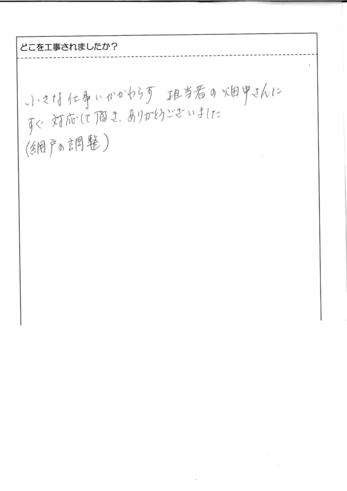 どこを工事されましたか？
小さな仕事にかかわらず 担当者の畑中さんに
すぐ対応して頂き、ありがとうございました
(網戸の調整)